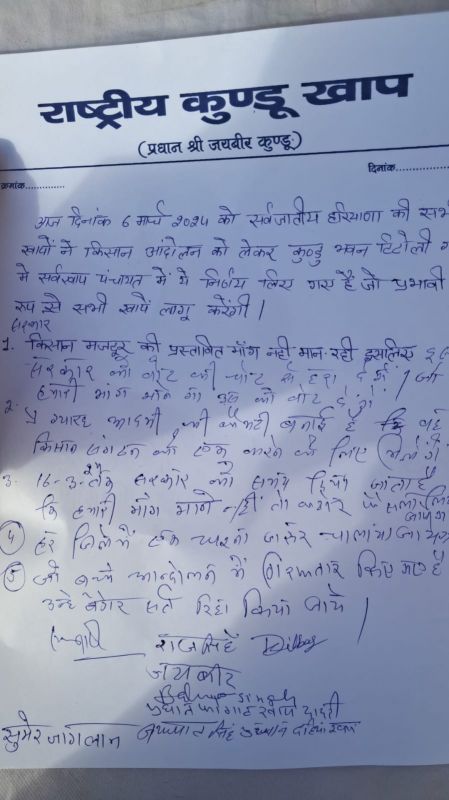 राष्ट्रीय कुण्डू खाप
(प्रधान श्री जयबीर कुण्डू)
क्रमांक............. दिनांक.............
आज दिनांक 6 मार्च 2024 को सर्वजातीय हरियाणा की सभी
खापों ने किसान आंदोलन को लेकर कुण्डु भवन टिटोली
मे सर्वखाप पंचायत में ये निर्णय लिए गए है जो प्रभावी
रूप से सभी खापें लागू करेंगी।
सरकार
1. किसान मजदूर की प्रस्तावित माँग नही मान रही इसलिए
सरकार को वोट की चोट से हरा देगें। जो
हमारी मांग मानेगा उस को वोट देगें
2. ये ग्यारह आदमी की कमेटी बनाई है कि वह
किसान संगठन को एक करने के लिए मिलेगें
3. 16-3-24 तक सरकार को समय दिया जाता है
कि हमारी माँग माने नही तो
4 हर जिले में एक जाकर चलाया जायगा
5 जो बच्चे आन्दोलन में गिरफ्तार किए गए है
उन्हे बगैर सर्त रिहा किया जाये।
राजसिंह Dilbag
जयबीर
singh
प्रधान फोगाट खाप दादरी
सुमेर जागलान